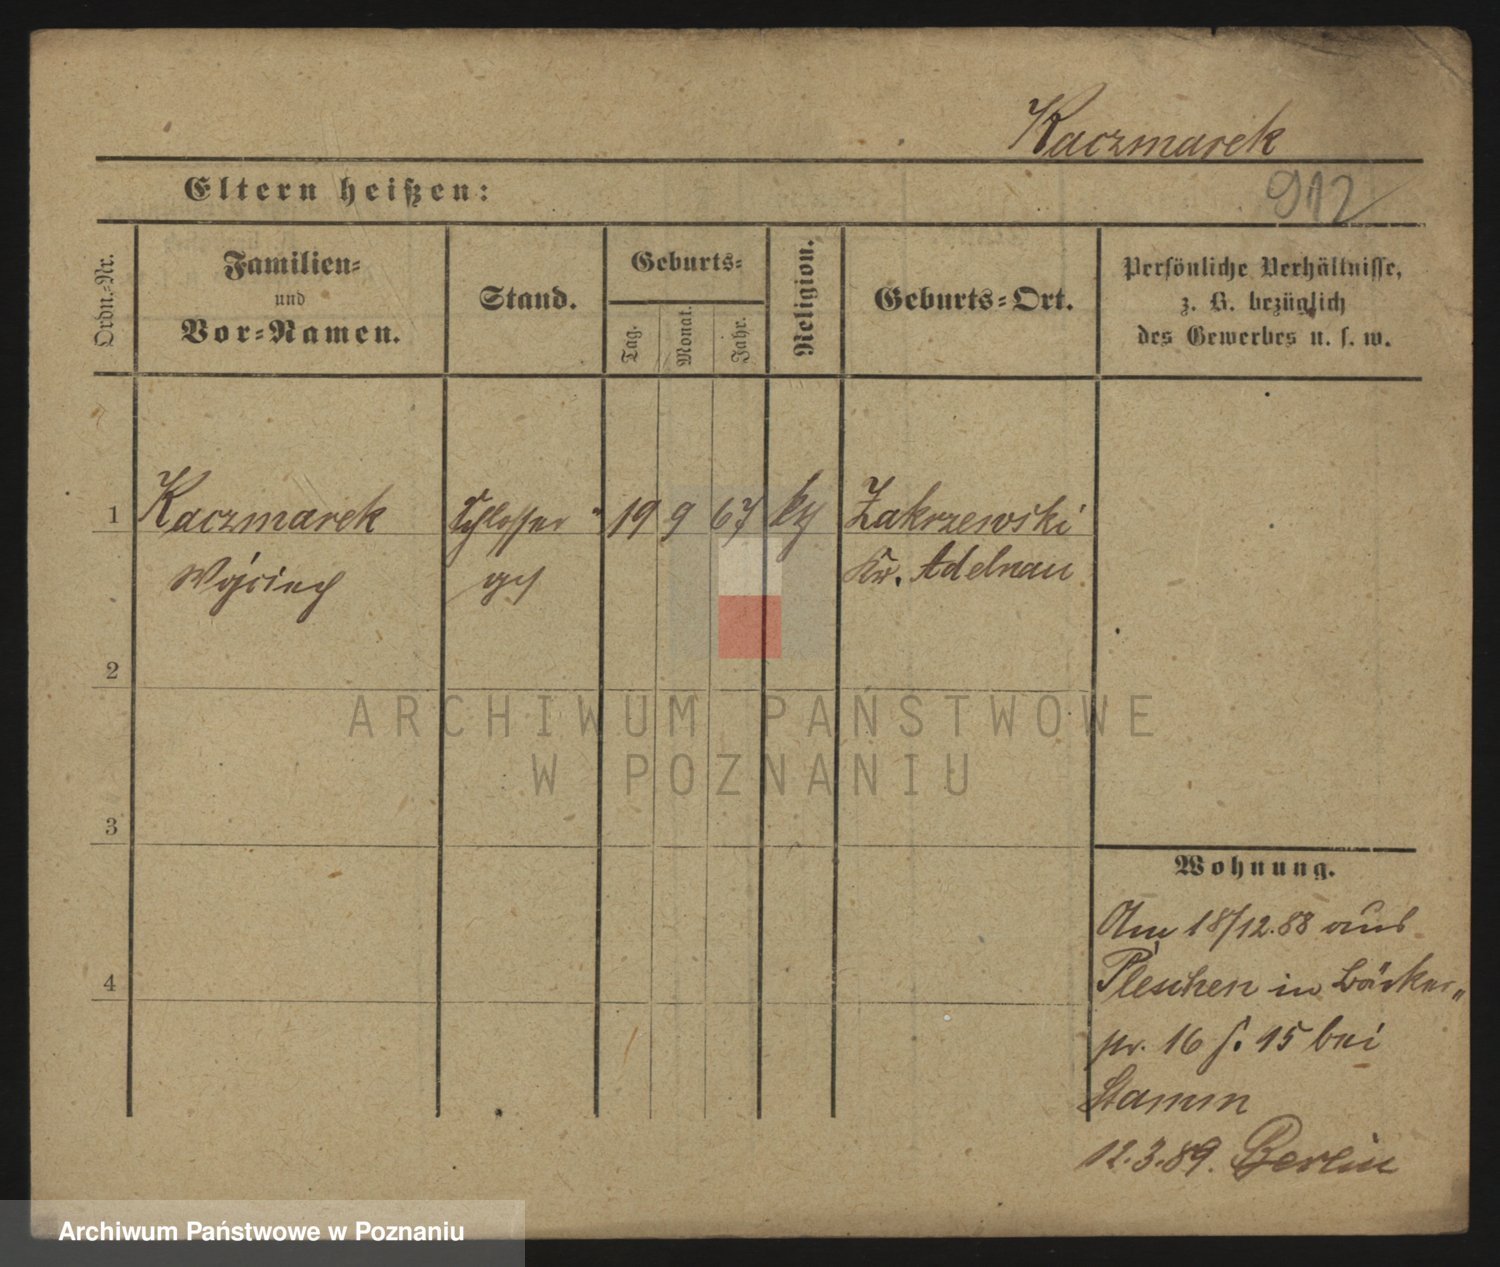 Kaczmarek
Eltern heißen:
912
Ordn.-Nr.
Familien-
und
Vor-Namen.
Stand.
Geburts-
Tag.
Monat.
Jahr.
Religion.
Geburts-Ort.
Persönliche Verhältnisse,
z. B. bezüglich
des Gewerbes u. s. w.
1
Kaczmarek
Schlosser
19
9
67
Zakrzewski
Wojciech
Kr. Adelnau
2
3
4
ARCHIWUM PAŃSTWOWE
W POZNANIU
Wohnung.
Am 18/12.88 aus
Pleschen in Bäcker"
16 15 bei
Stamm
12.3.89. Berlin
Archiwum Państwowe w Poznaniu